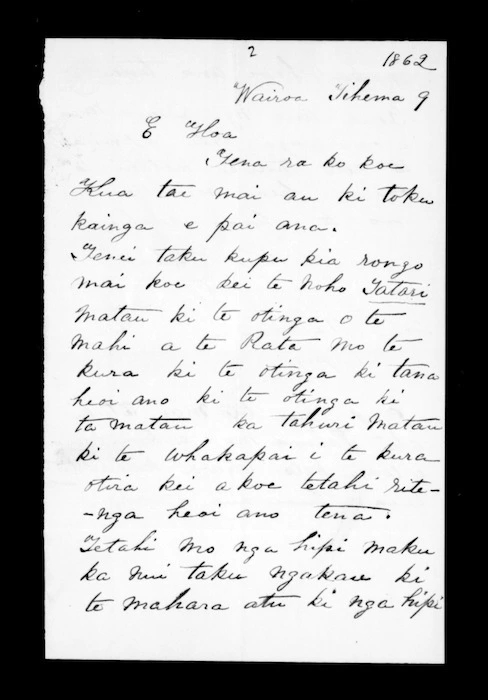 2
1862
Wairoa Tihema 9
E Hoa
Tena ra ko koe
Kua tae mai au ki toku
kainga e pai ana.
Tenei taku kupu kia rongo
mai koe kei te noho Tatari
matau ki te otinga o te
mahi a te Rata mo te
kura ki te otinga ki tana
heoi ano ki te otinga ki
ta matau ka tahuri matau
ki te whakapai i te kura
otira kei a koe tetahi rite-
-nga heoi ano tena.
Tetahi mo nga hipi maku
ka nui taku ngakau ki
te mahara atu ki nga hipi